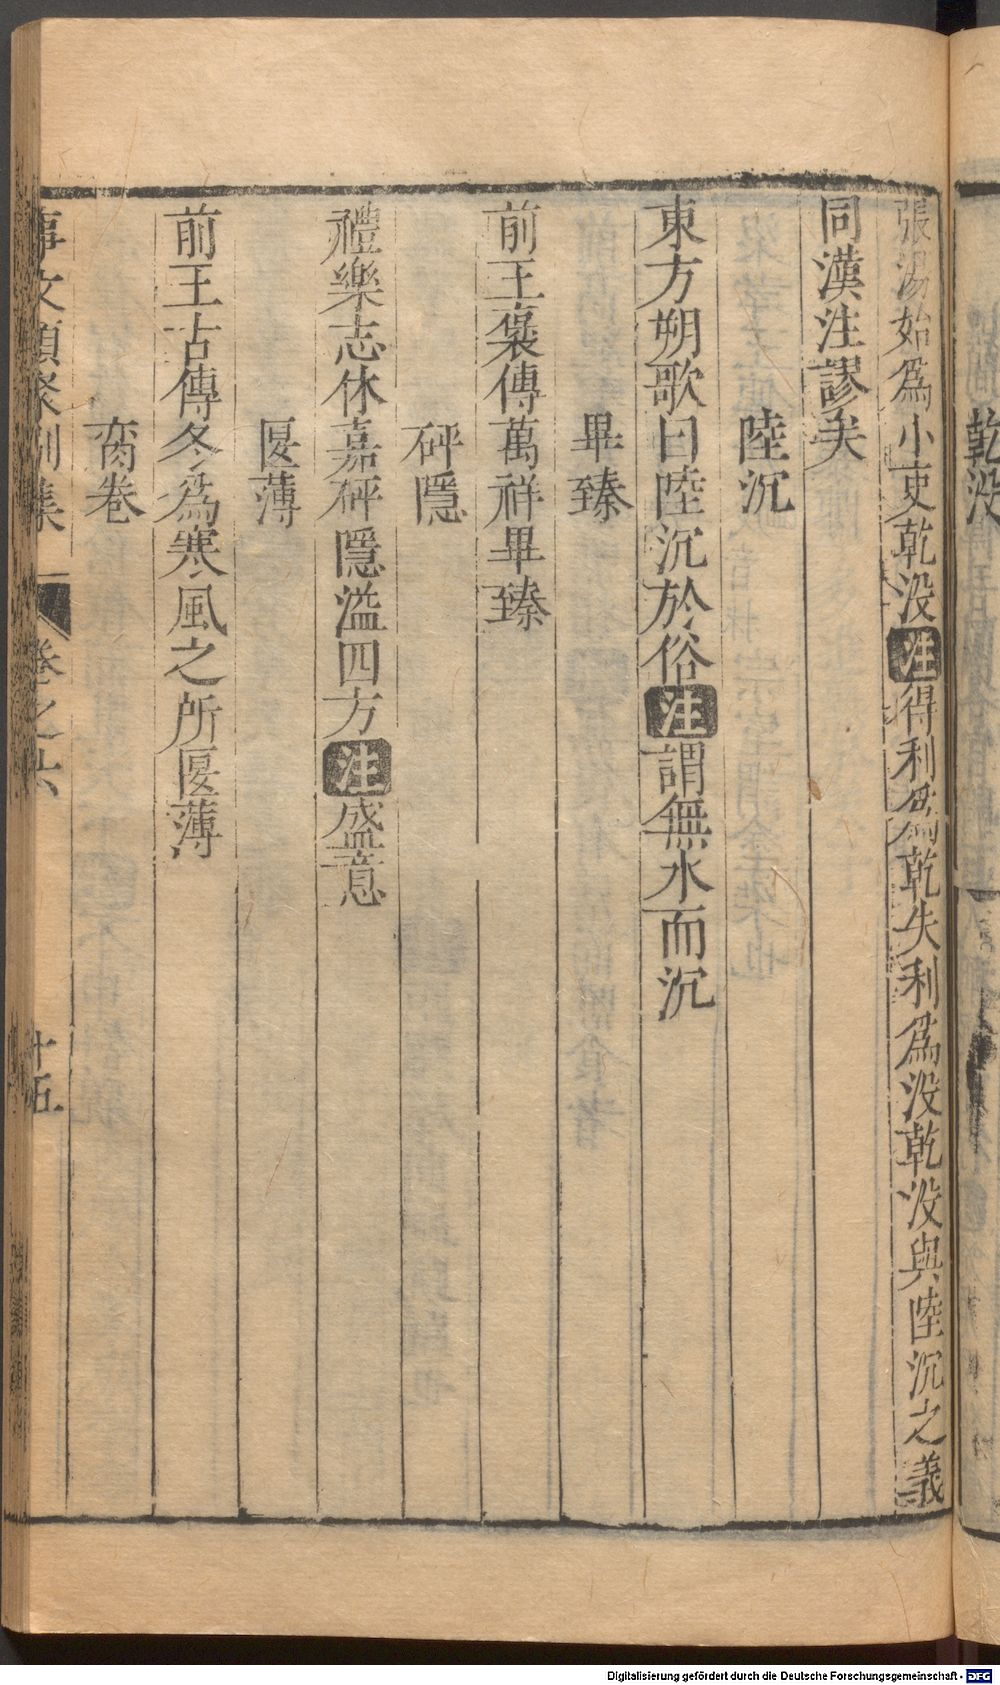 乾没
張湯始爲小吏乾没注得利爲乾失利爲没乾没與陸沉之義
同漢注謬矣
陸沉
東方朔歌曰陸沉於俗注謂無水而沉
畢臻
前王褒傳萬祥畢臻
砰隱
禮樂志休嘉砰隱溢四方注盛意
匽薄
前王吉傳冬爲寒風之所匽薄
臠卷
事文類聚别集
卷之六
十五
Digitalisierung gefördert durch die Deutsche Forschungsgemeinschaft - DFG